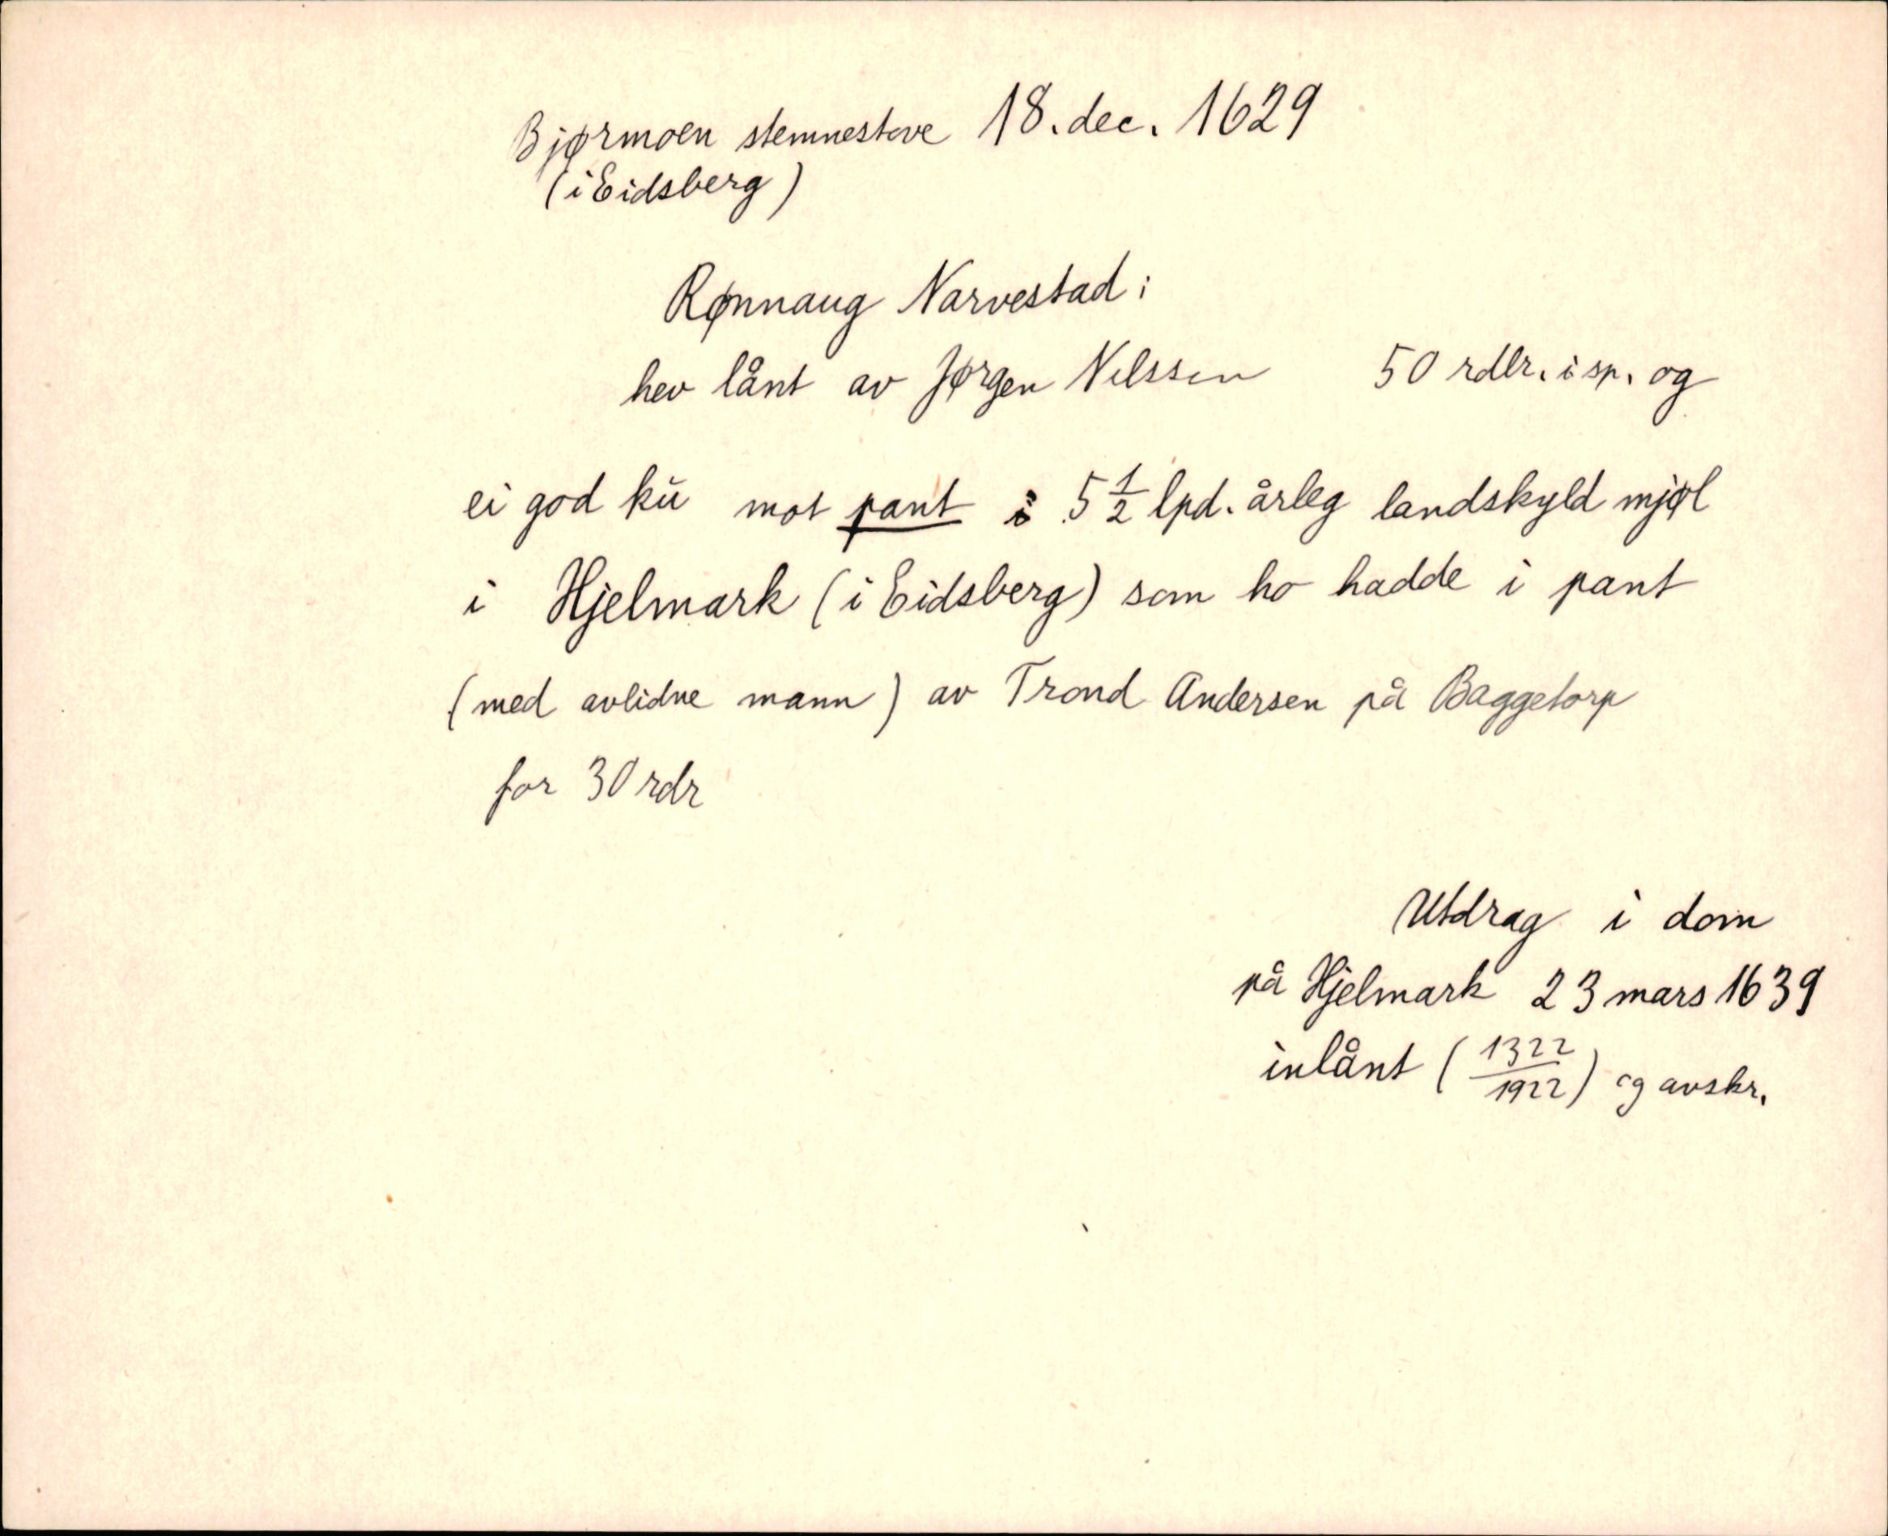 Bjørmoen stemnestove 18. dec. 1629
(i Eidsberg)
Rønnaug Narvestad:
hev lånt av Jørgen Nilssen 50 rdlr. i sp. og
ei god ku mot pant i 5 1/2 lpd. årleg landskyld mjøl
i Hjelmark (i Eidsberg) som ho hadde i pant
(med avlidne mann) av Trond Andersen på Baggetorp
for 30 rdr
Utdrag i dom
på Hjelmark 23 mars 1639
inlånt (1322/1922) og avskr.